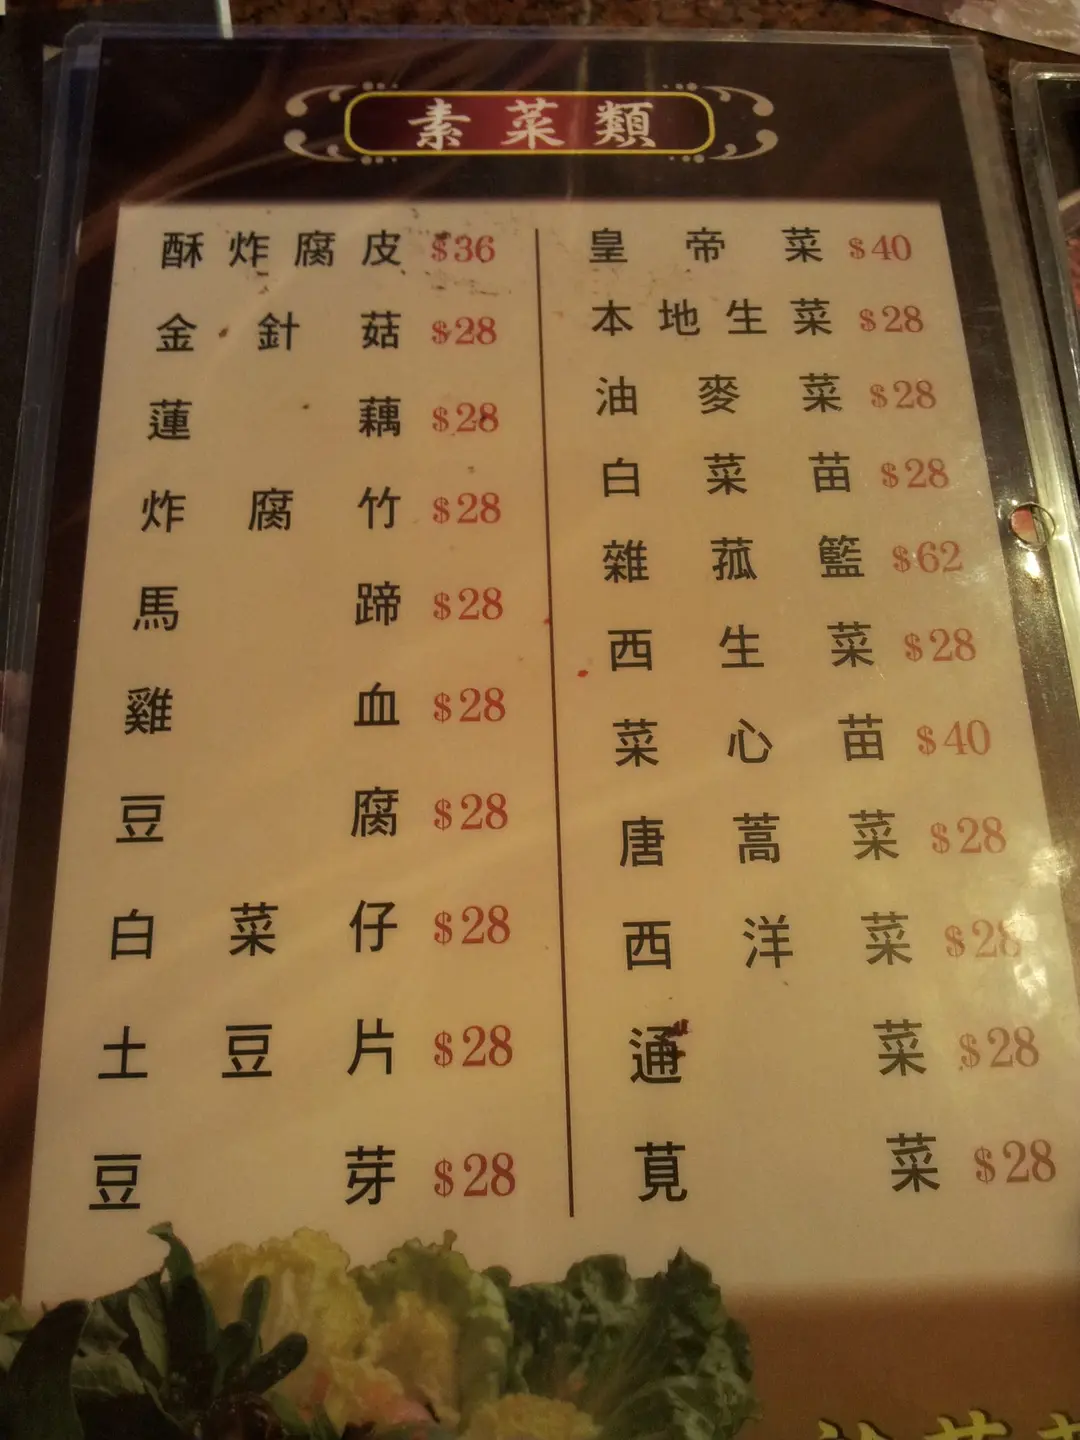 素菜類
酥炸腐皮 $36
金針菇 $28
蓮藕 $28
炸腐竹 $28
馬蹄 $28
雞血 $28
豆腐 $28
白菜仔 $28
土豆片 $28
豆芽 $28
皇帝菜 $40
本地生菜 $28
油麥菜 $28
白菜苗 $28
雜菰籃 $62
西生菜 $28
菜心苗 $40
唐蒿菜 $28
西洋菜 $28
通菜 $28
莧菜 $28